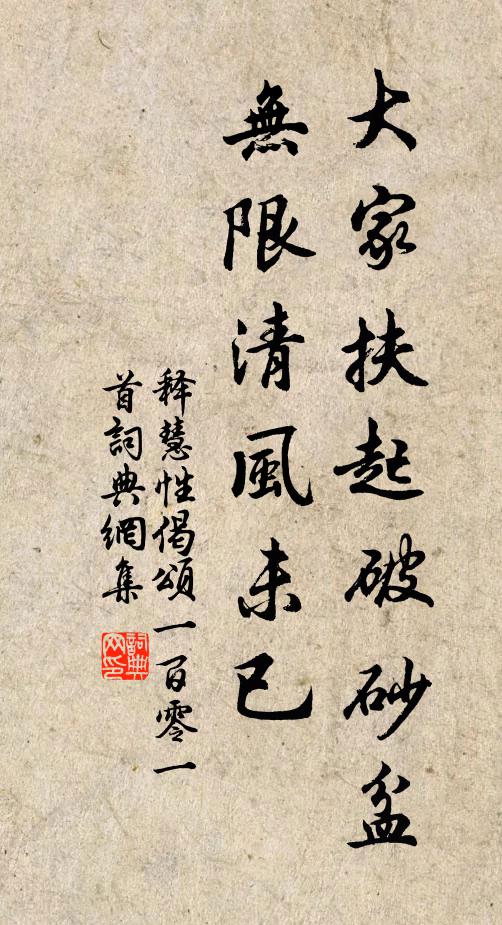 大家扶起破砂盆
無限清風未已
释慧性偈頌一百零一
首詞典網集
詞典网印